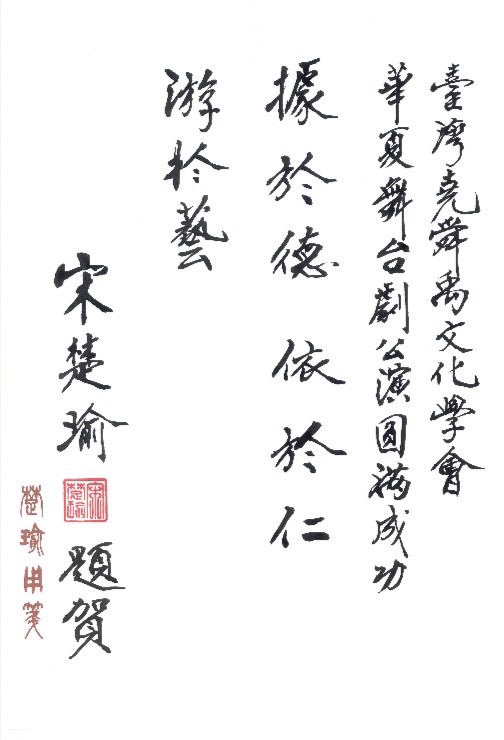 臺灣堯舜禹文化學會
華夏舞台劇公演圓滿成功
據於德 依於仁
游於藝
宋楚瑜 題賀
宋楚瑜
楚瑜用箋